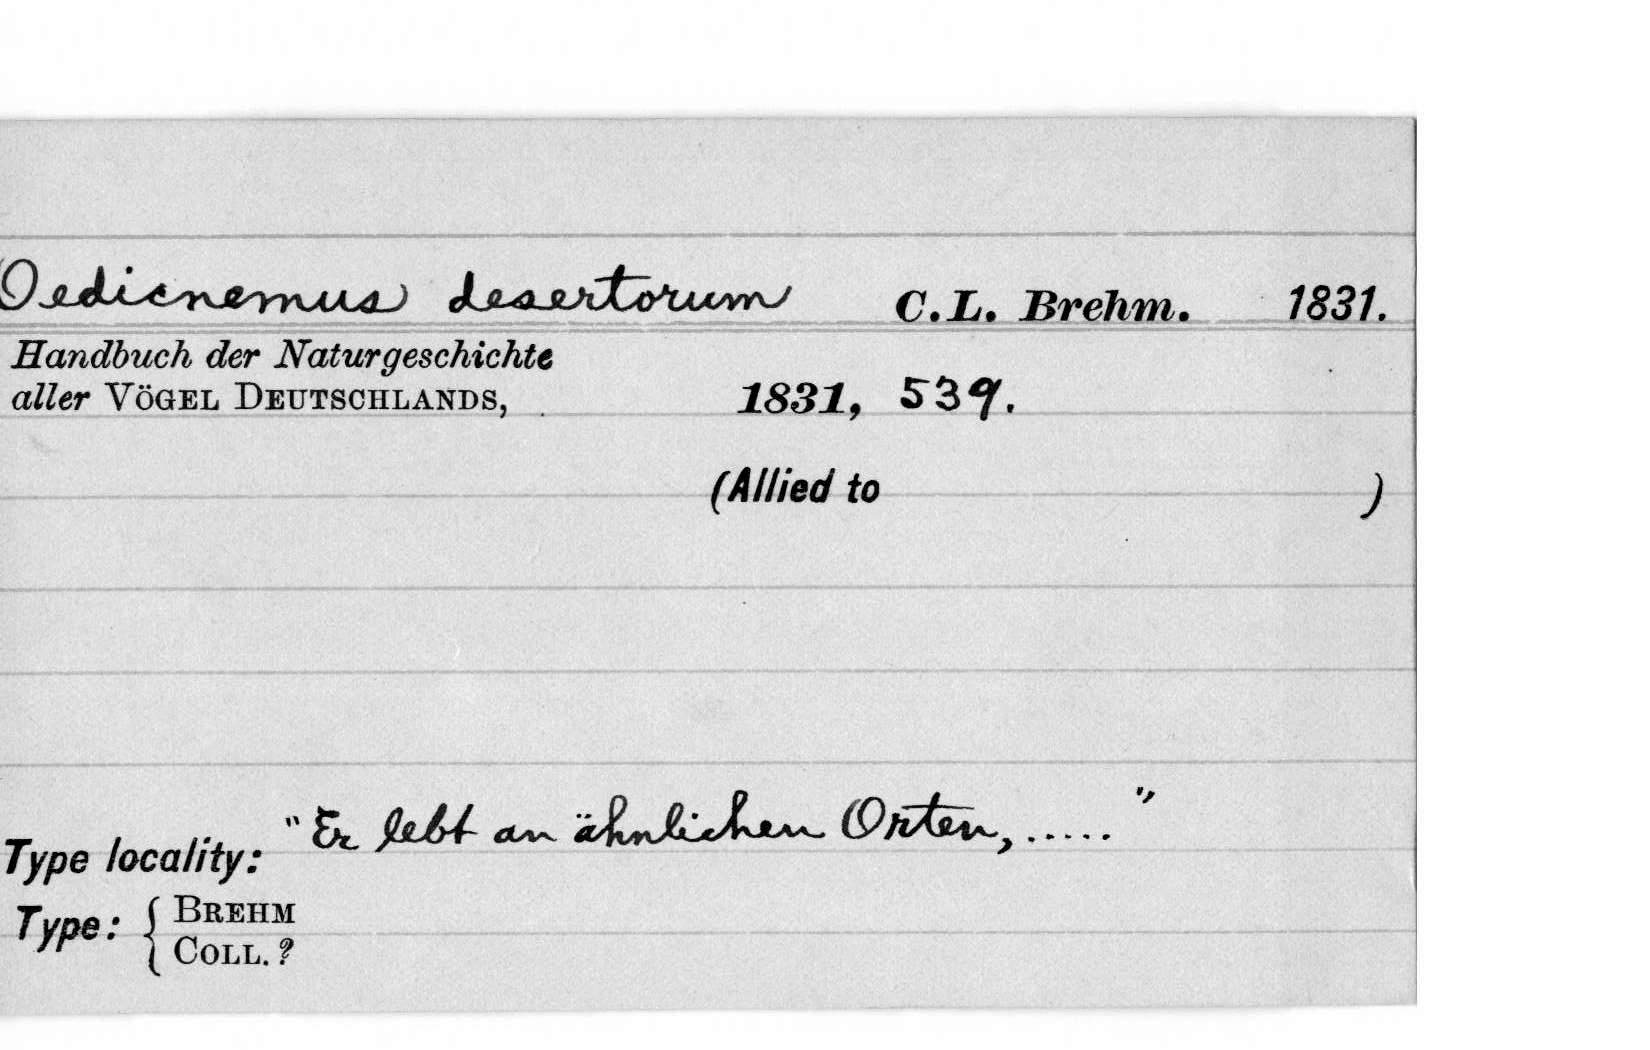 Oedicnemus desertorum C.L. Brehm. 1831.
Handbuch der Naturgeschichte
aller VÖGEL DEUTSCHLANDS, 1831, 539.
(Allied to )
Type locality: "Er lebt an ähnlichen Orten,....."
Type: { BREHM
COLL. ?